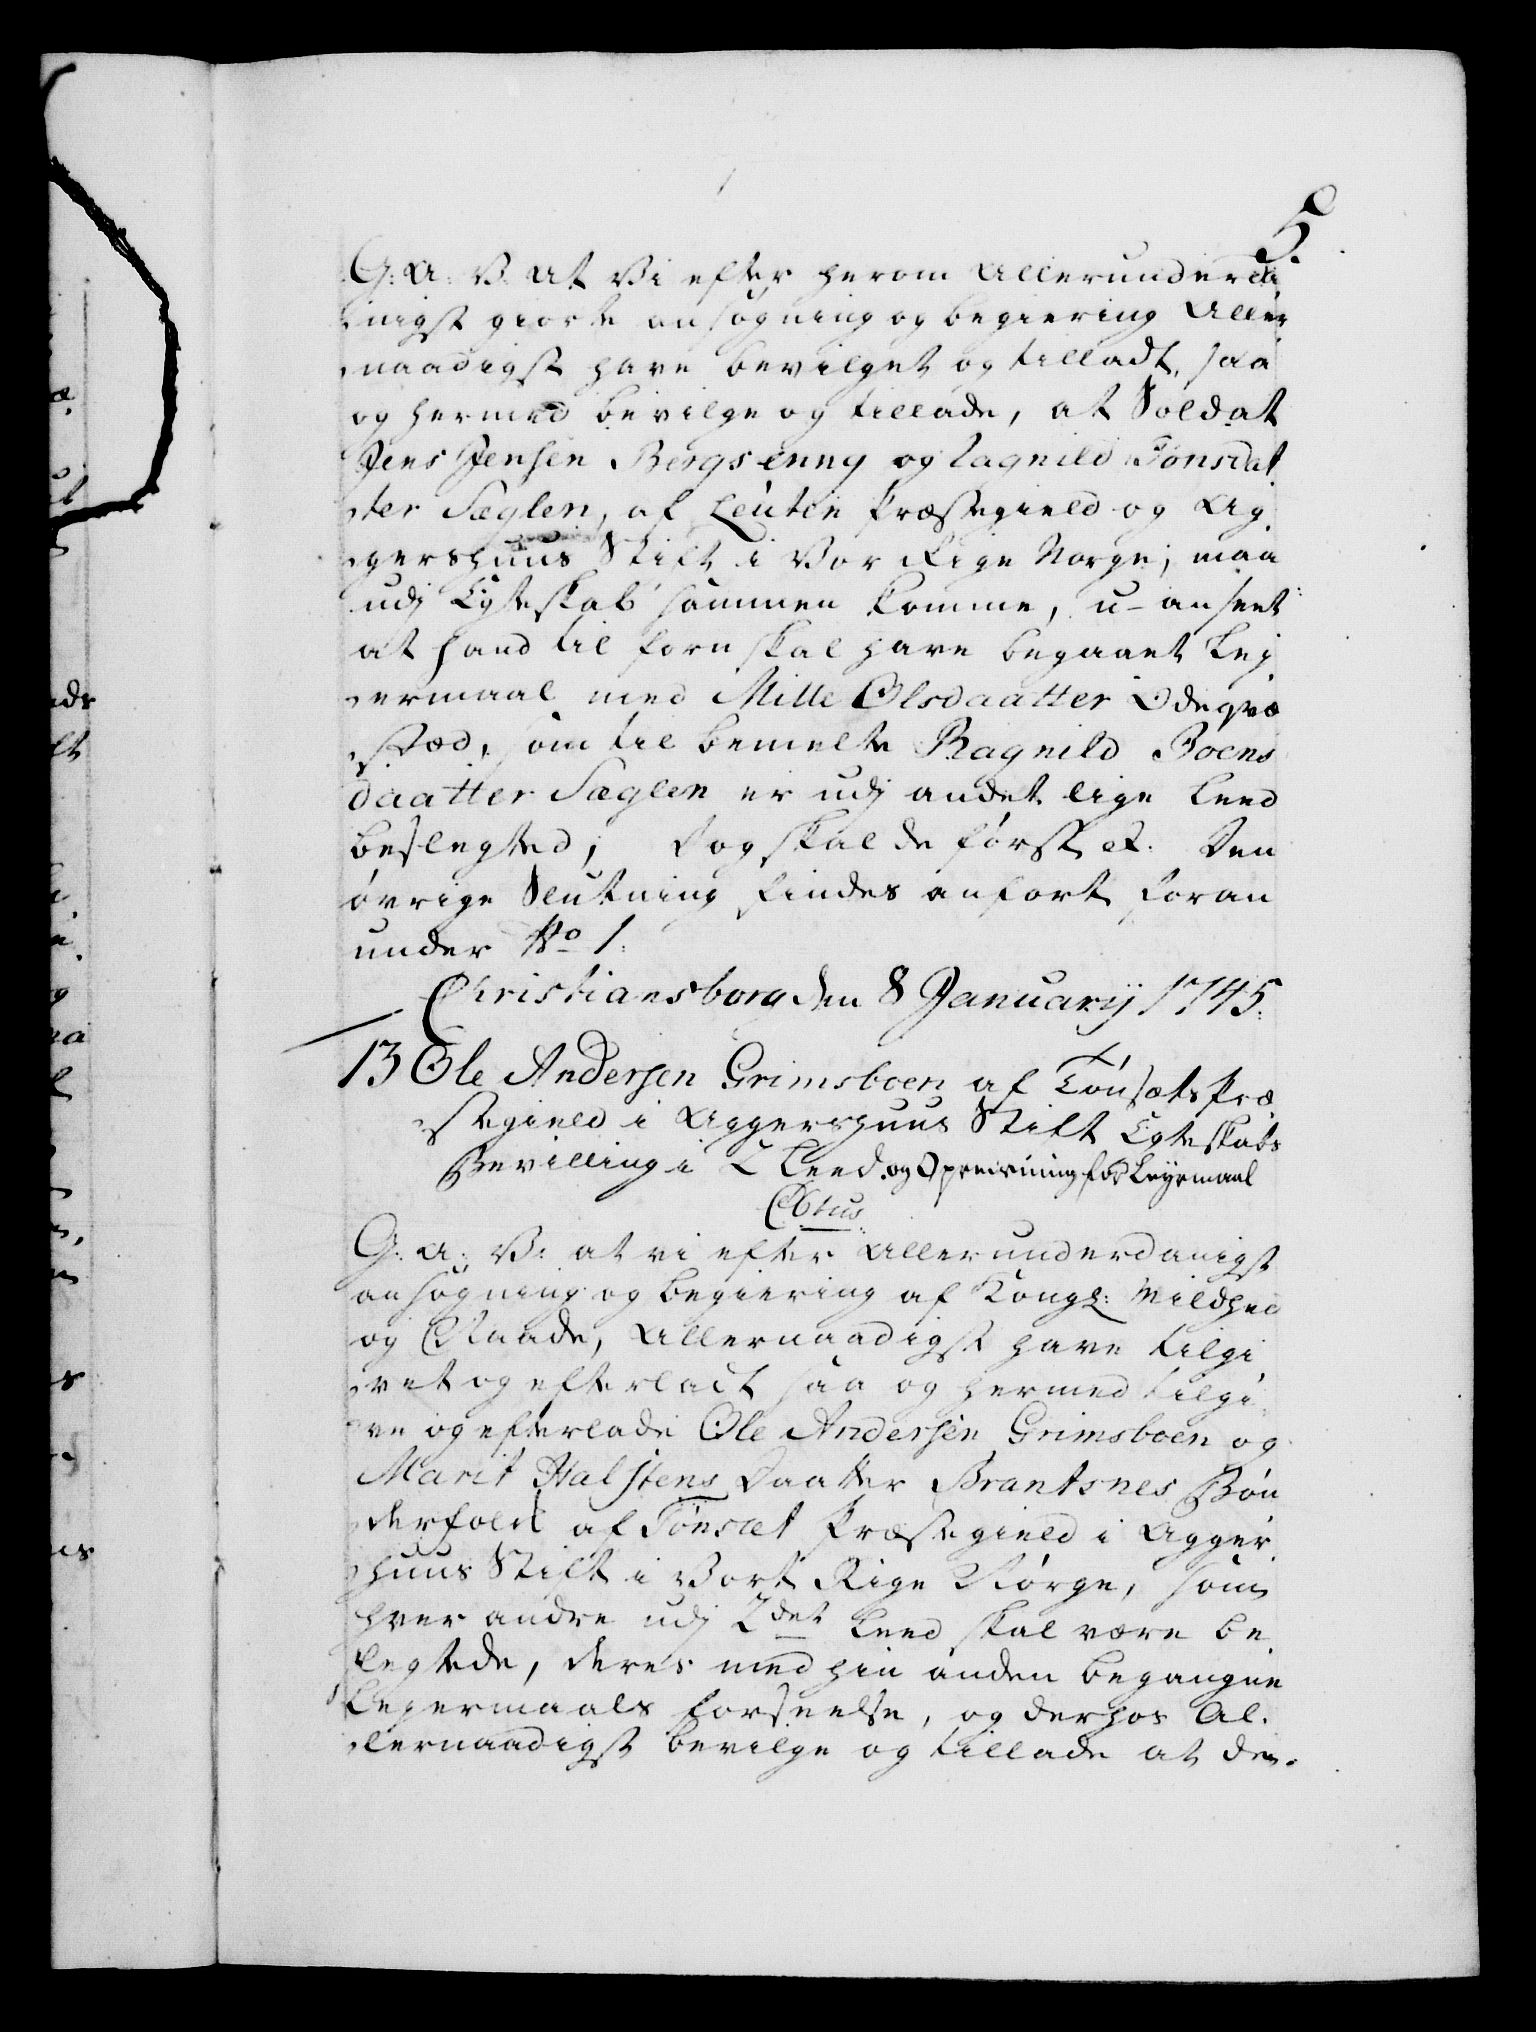 5.
G: A: V. At Vi efter herom Allerunderda
nigst giorte ansøgning og begiering Aller
naadigst have bevilget og tilladt, saa
og hermed bevilge og tillade, at Soldat
Jens Jensen Bergsenng og Ragnild Joensdat
ter Sæglen, af Leuten Præstegield og Ag
gershuus Stift i Vor Rige Norge, maa
udj Egteskab sammen komme, u-anseet
at hand til forn skal have begaaet Lej
ermaal med Mille Olsdaatter Ødeqvæ
stæd, som til bemelte Ragnild Joens
daatter Sæglen er udj andet lige Leed
beslegted; Dog skal de først et. Den
øvrige Slutning findes anført foran
under No 1.
Christiansborg den 8 Januarij 1745.
13 Ole Andersen Grimsboen af Tønsets Præ
stegield i Aggershuus Stift Egteskabs
Bevilling i 2 Leed og Opreisning for Leyermaal
Cbtus
G: A: V: at vi efter Allerunderdanigst
ansøgning og begiering af Kongl: Mildhed
og Naade, Allernaadigst have tilgi
vet og efterladt saa og hermed tilgi
ve og efterlade Ole Andersen Grimsboen og
Marit Halstens Daatter Brantsnes Bøn
derfolk af Tønset Præstegield i Agger
huus Stift i Vort Rige Norge, som
hver andre udj 2det Leed skal være be
slegtede, deres med hin anden begangne
Leyermaals Forseelse, og derhos Al
lernaadigst bevilge og tillade at de